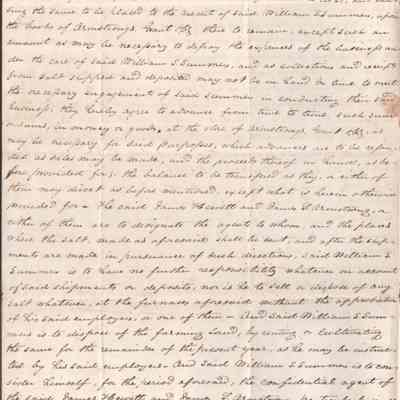 sing the same to be placed to the credit of said William S Summers, upon
the books of Armstrongs, Grant &Co there to remain, except such an
amount as may be necessary to defray the expenses of the business un-
der the care of said William S Summers, and as collections and receipts
from salt shipped and deposited may not be in hand in time to meet
the necessary engagements of said Summers in conducting their said
business, they hereby agree to advance from time to time such sums
in money or goods, at the store of Armstrongs Grant &Co, as
may be necessary for said purposes, which advances are to be refun-
ded as sales may be made, and the proceeds thereof in hands, as be-
fore provided for; the balance to be transferred as they, or either of
them may direct as before mentioned, except what is herein otherwise
provided for – The said James Hewett and James S. Armstrong, or
either of them are to designate the agent to whom, and the places
where the salt, made as aforesaid shall be sent, and after the ship-
ments are made in pursuance of such directions, said William S
Summers is to have no further responsibility whatever on account
of said shipments or deposits, nor is he to sell or dispose of any
salt whatever, at the furnaces aforesaid without the approbation
of his said employers, or one of them – And said William S Sum-
mers is to dispose of the farming land, by renting or cultivating
the same for the remainder of the present year, as he may be instruc-
ted by his said employers – And said William S Summers is to con-
sider himself, for the period aforesaid, the confidential agent of
the said James Hewett and James S. Armstrong